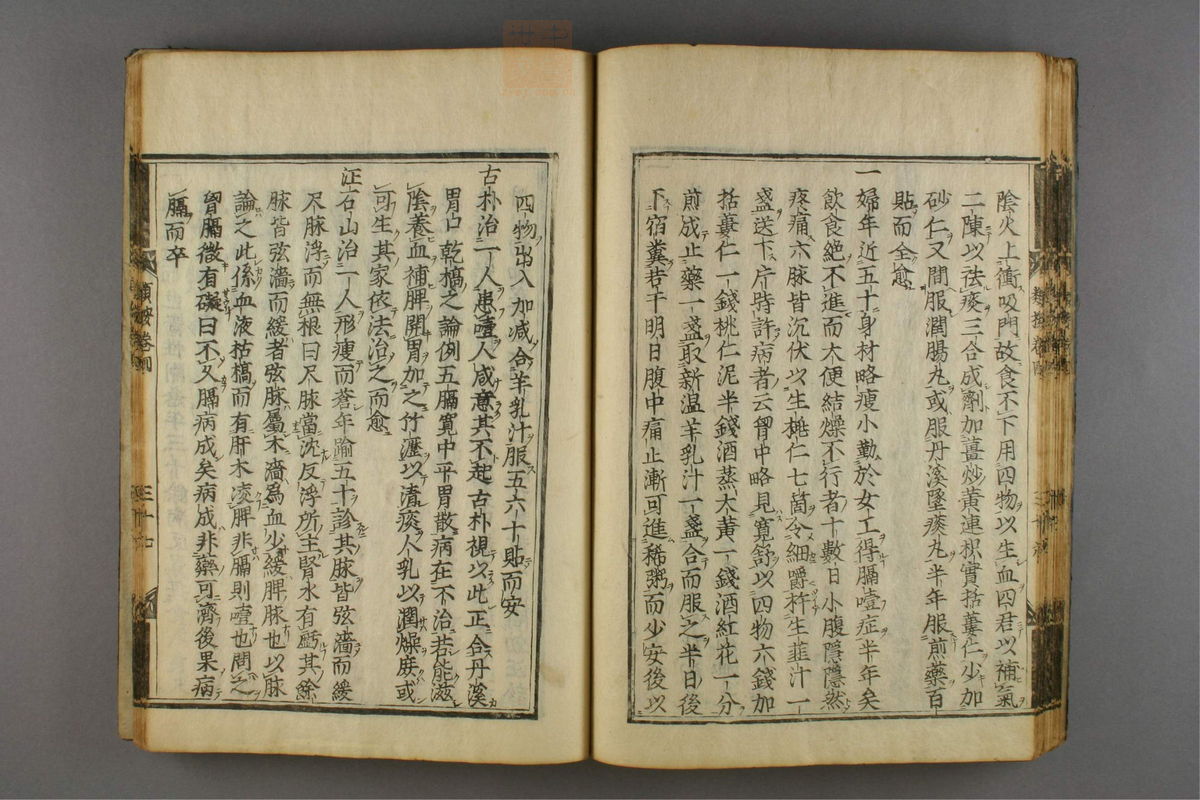 陰火上衝吸門故食不下用四物以生血四君以補氣
二陳以祛痰三合成劑加薑炒黃連枳實括蔞仁少加
砂仁又間服潤腸丸或服丹溪墜痰丸半年服煎藥百
貼而全愈
一婦年近五十身材略瘦小勤於女工得膈噎症半年矣
飲食絕不進而大便結燥不行者十數日小腹隱隱然
疼痛六脉皆沉伏以生桃仁七箇令細嚼杵生韮汁一
盞送下片時許病者云胷中略見寬舒以四物六錢加
括蔞仁一錢桃仁泥半錢酒蒸大黃一錢酒紅花一分
煎成止藥一盞取新温羊乳汁一盞合而服之半日後
下宿糞若干明日腹中痛止漸可進稀粥而少安後以
四物出入加減合羊乳汁服五六十貼而安
古朴治一人患噎人咸意其不起古朴視以此正合丹溪
胃口乾槁之論例五膈寬中平胃散病在不治若能滋
陰養血補脾開胃加之竹瀝以清痰人乳以潤燥庶或
可生其家依法治之而愈
汪石山治一人形瘦而蒼年踰五十診其脉皆弦濇而緩
尺脉浮而無根曰尺脉當沈反浮所主腎水有虧其餘
脉皆弦濇而緩者弦脉屬木濇爲血少緩脾脉也以脉
論之此係血液枯槁而有肝木凌脾非膈則噎也問之
胷膈微有礙曰不久膈病成矣病成非藥可濟後果病
膈而卒